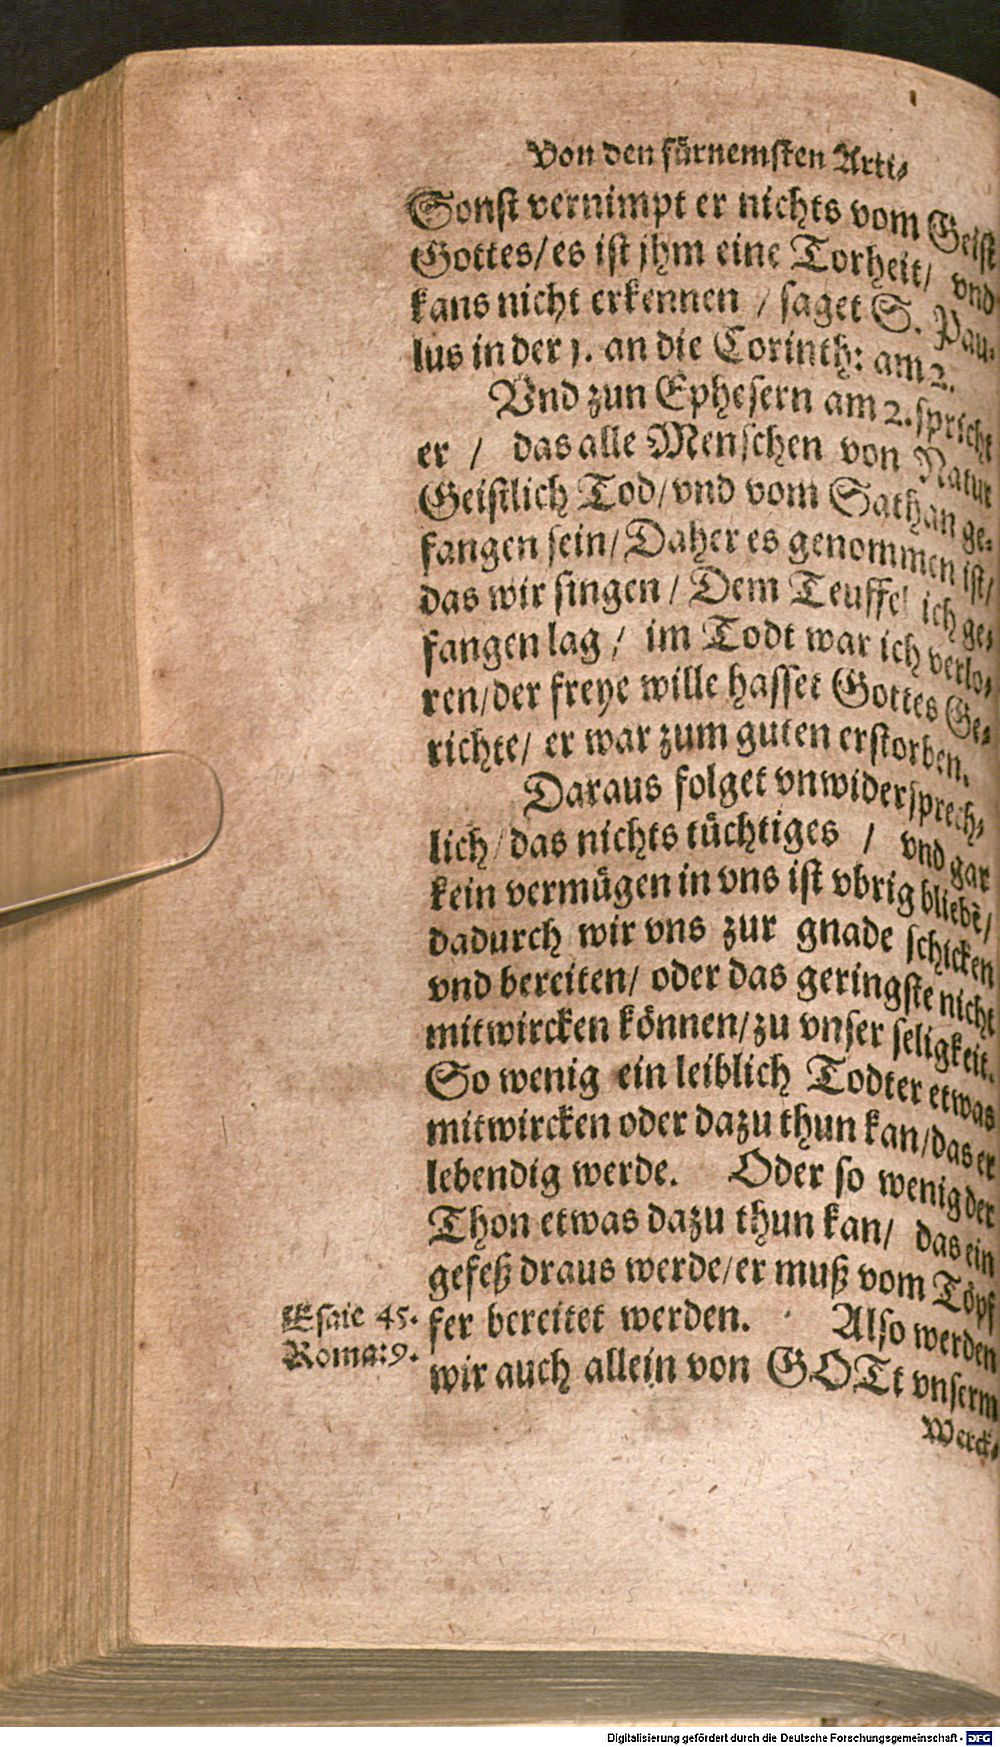 Von den fürnemsten Arti⸗
Sonst vernimpt er nichts vom Geist
Gottes/ es ist jhm eine Torheit/ vnd
kans nicht erkennen / saget S. Pau⸗
lus in der 1. an die Corinth: am 2.
Vnd zun Ephesern am 2. spricht
er / das alle Menschen von Natur
Geistlich Tod/ vnd vom Sathan ge⸗
fangen sein/ Daher es genommen ist/
das wir singen / Dem Teuffel ich ge⸗
fangen lag / im Todt war ich verlo⸗
ren/ der freye wille hasset Gottes Ge⸗
richte/ er war zum guten erstorben.
Daraus folget vnwidersprech⸗
lich/ das nichts tüchtiges / vnd gar
kein vermügen in vns ist vbrig bliebẽ/
dadurch wir vns zur gnade schicken
vnd bereiten/ oder das geringste nicht
mitwircken können/ zu vnser seligkeit.
So wenig ein leiblich Todter etwas
mitwircken oder dazu thun kan/ das er
lebendig werde. Oder so wenig der
Thon etwas dazu thun kan/ das ein
gefeß draus werde/ er muß vom Töpf
Esaie 45. fer bereitet werden. Also werden
Roma: 9. wir auch allein von GOTt vnserm
Werck⸗
Digitalisierung gefördert durch die Deutsche Forschungsgemeinschaft - DFG